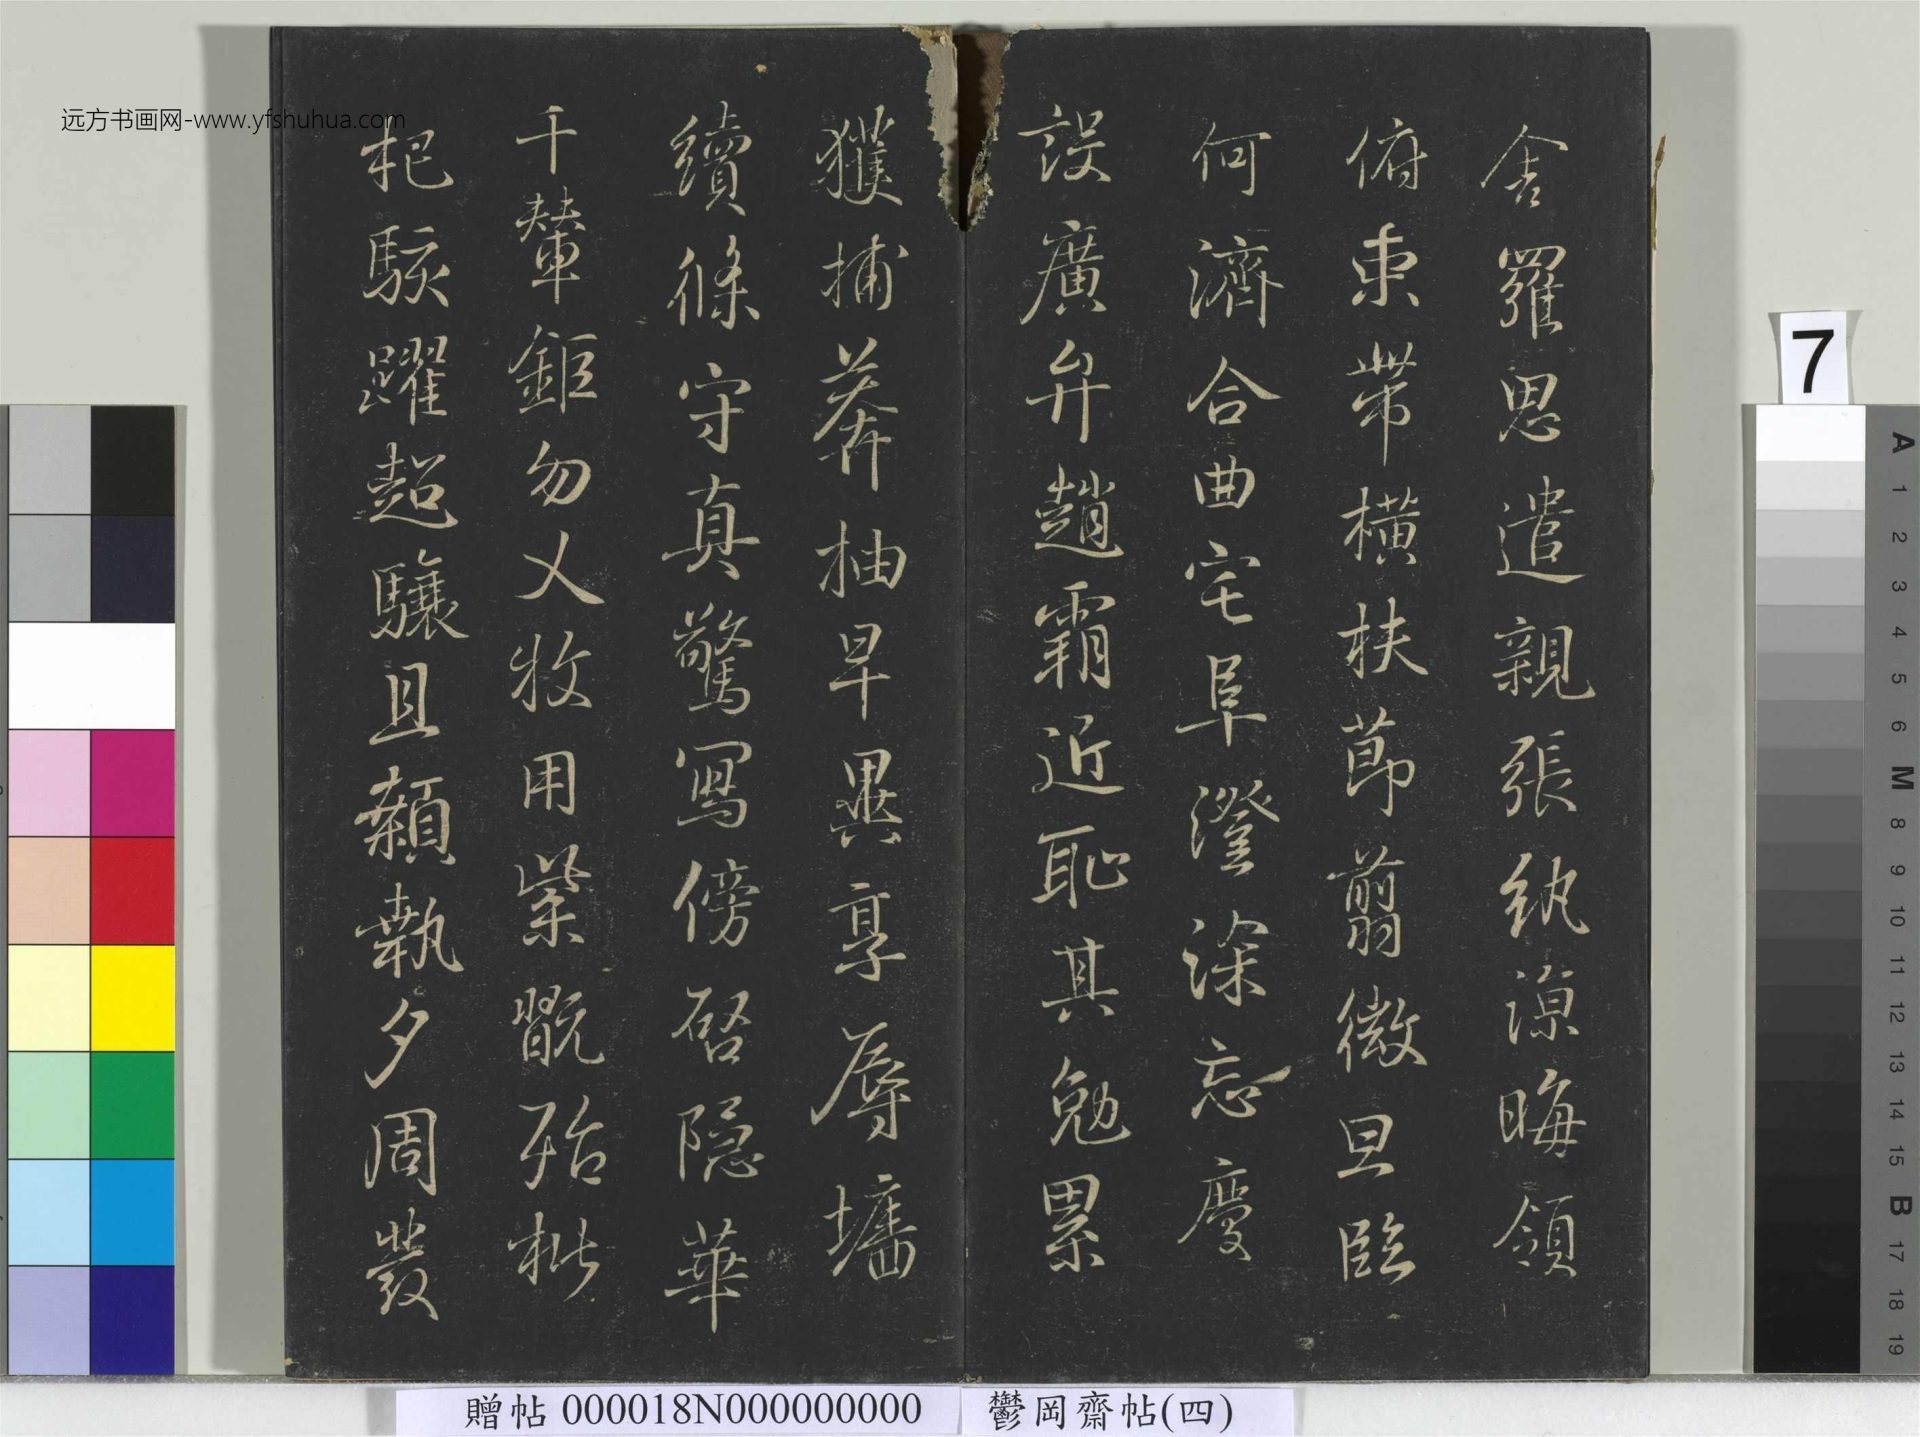 舍羅思遣親張紈凉晦領
俯束帶橫扶莭翦微旦臨
何濟合曲宅阜澄深忘慶
設廣弁趙霸近耻其勉累
獲捕莽抽早異享辱墻
續條守真驚寫傍啓隐華
千輦鉅勿乂牧用紫翫殆枇
杷駭躍超驤且顙執夕周發
远方书画网-www.yfshuhua.com
7
A
1
2
3
4
5
6
M
8
9
10
11
12
13
14
15
B
17
18
19
贈帖 000018N000000000
鬱岡齋帖(四)